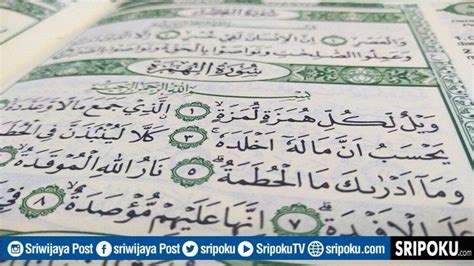 سُورَةُ العَصْرِ
وَالْعَصْرِۙ ١ اِنَّ الْاِنْسَانَ لَفِيْ
وَعَمِلُوا الصّٰلِحٰتِ وَتَوَاصَوْا بِالْحَقِّ وَتَوَاصَوْا
سُورَةُ الهُمَزَةِ
بِسْمِ اللّٰهِ الرَّحْمٰنِ الرَّحِيْمِ
وَيْلٌ لِّكُلِّ هُمَزَةٍ لُّمَزَةٍۙ ١ الَّذِيْ جَمَعَ مَالًا وَّعَدَّدَهٗ
يَحْسَبُ اَنَّ مَالَهٗٓ اَخْلَدَهٗۚ ٣ كَلَّا لَيُنْۢبَذَنَّ فِى الْحُطَمَةِ
وَمَآ اَدْرٰىكَ مَا الْحُطَمَةُۗ ٥ نَارُ اللّٰهِ الْمُوْقَدَةُۙ
عَلَى الْاَفْـِٕدَةِۗ ٧ اِنَّهَا عَلَيْهِمْ مُّؤْصَدَةٌۙ ٨ فِيْ
Sriwijaya Post sriwijaya Post sripoku SripokuTV sripoku.com SRIPOKU.com